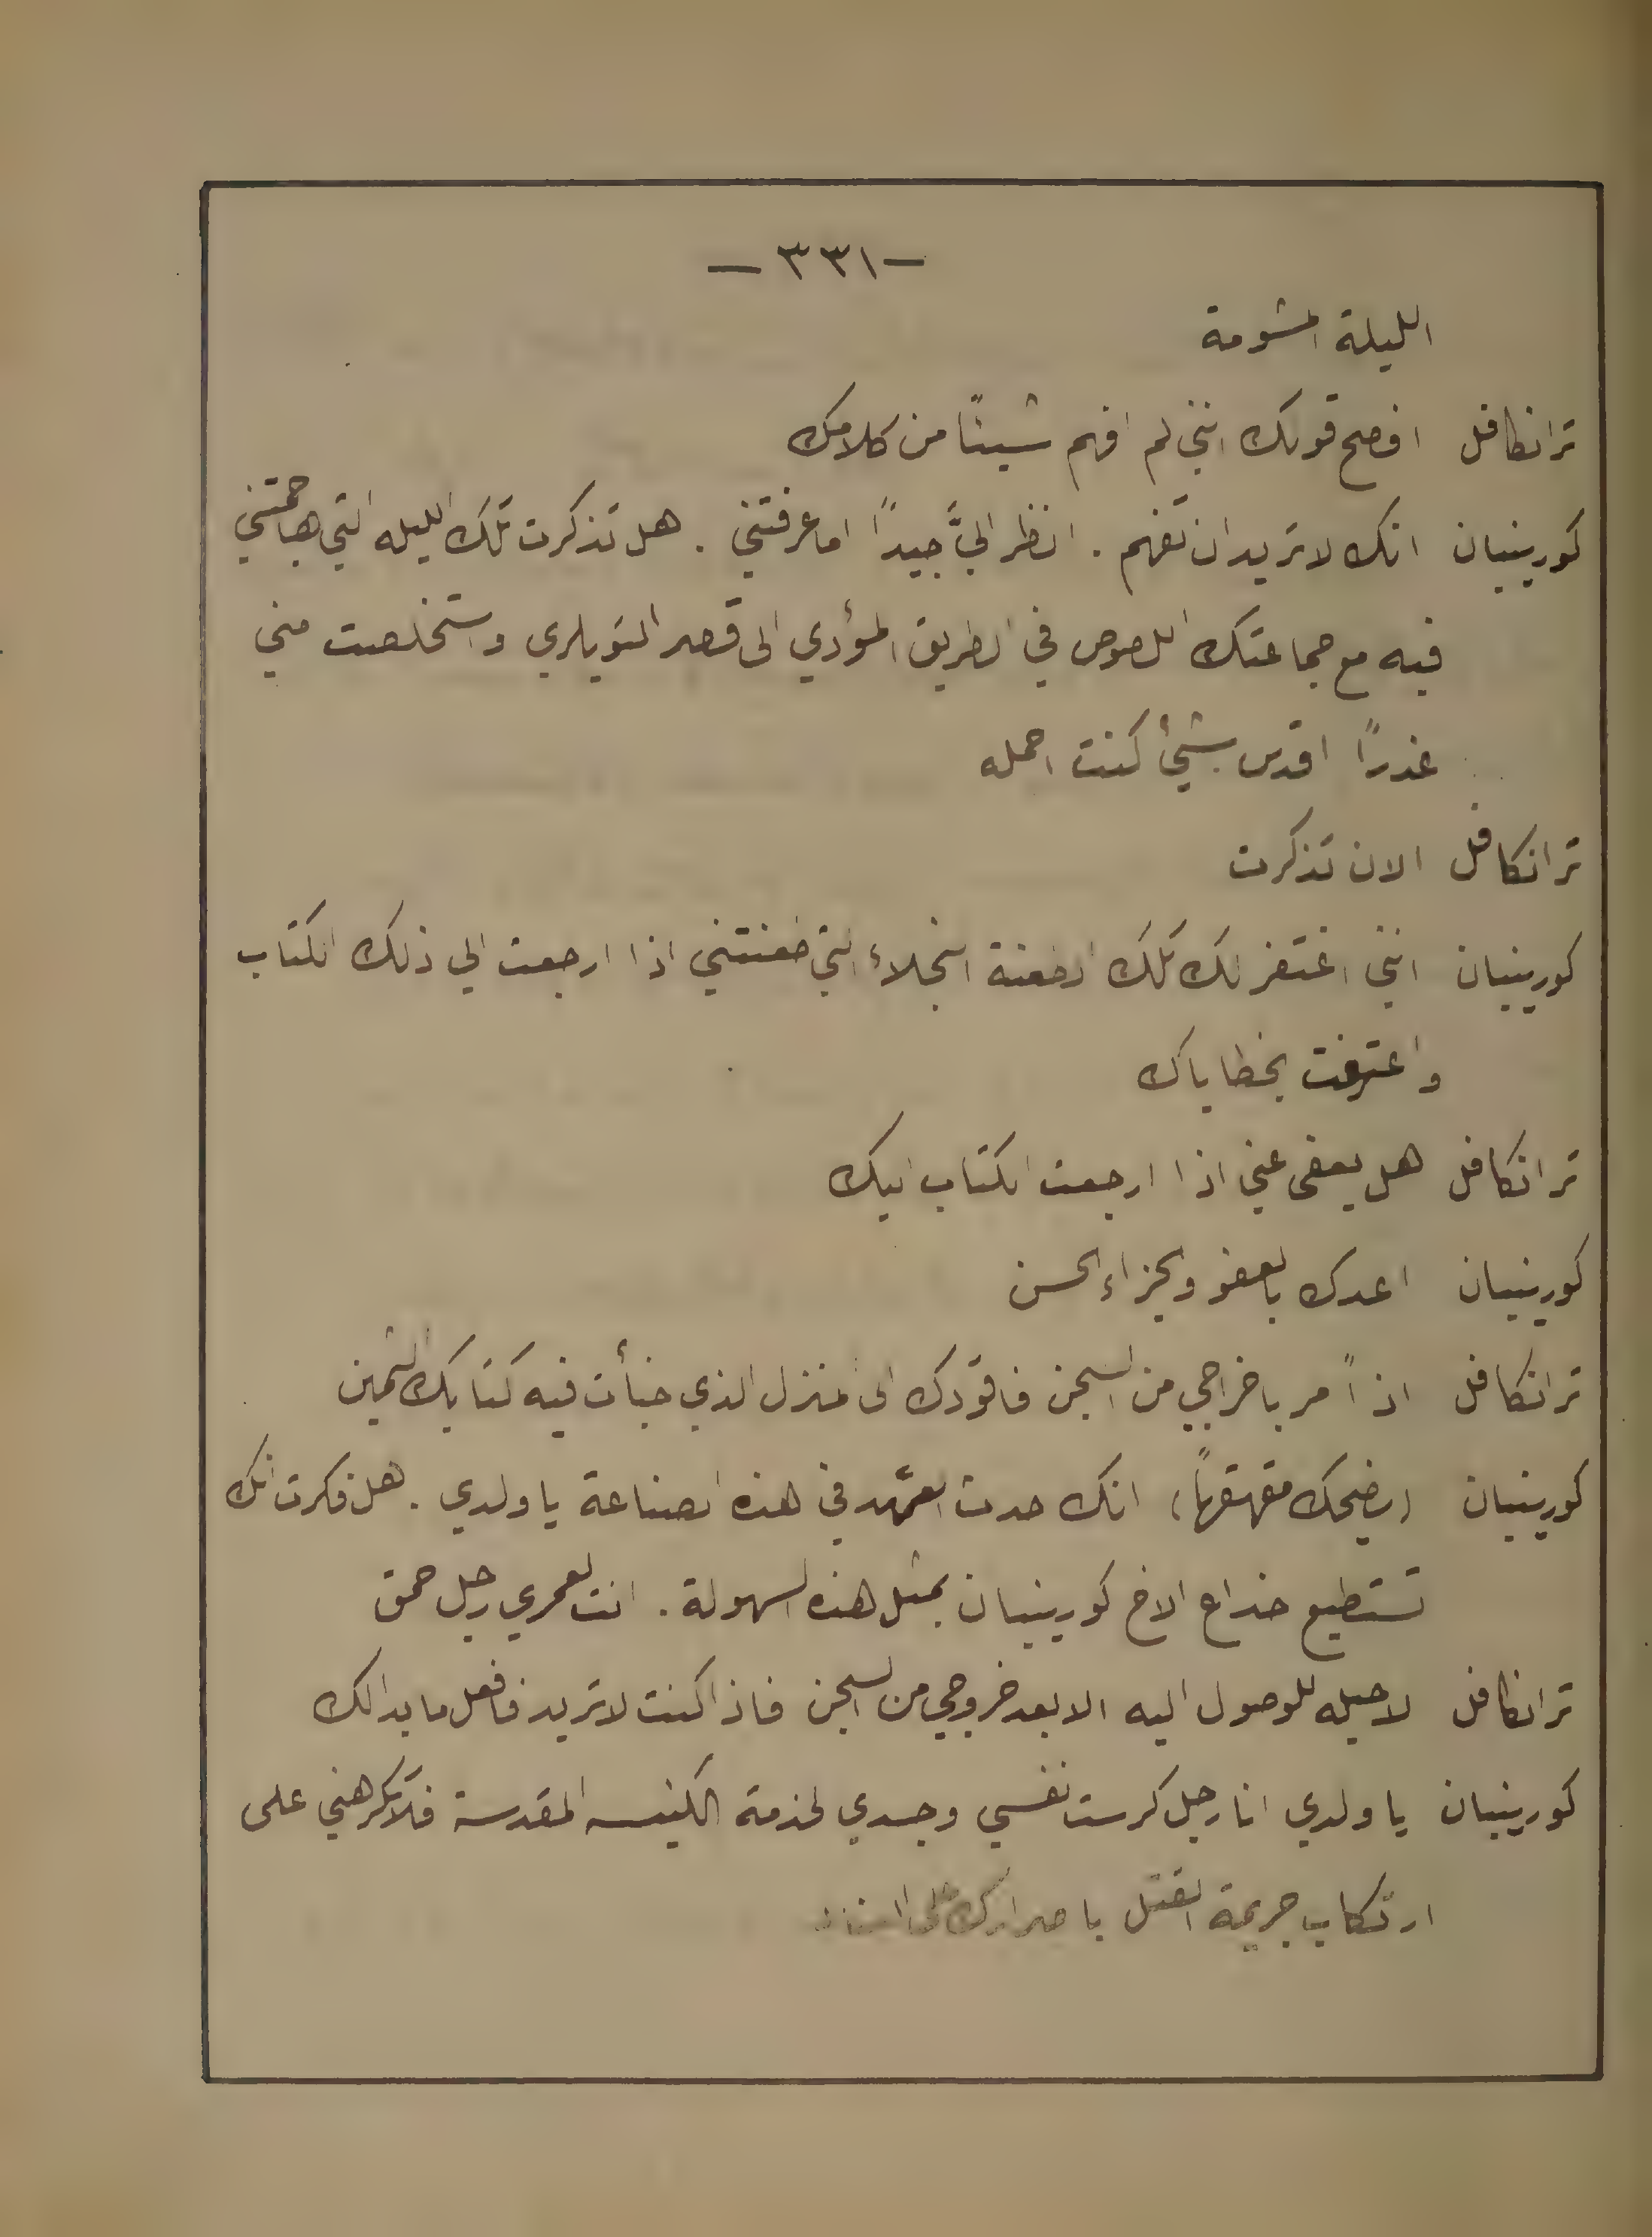 - ٣٣١ -
الليلة المشومة
ترانكافل افصح قولك انني لم افهم شيئًا من كلامك
كورينيان انك لا تريد ان تفهم . انظر اليَّ جيدًا اما عرفتني . هل تذكرت تلك الليله التي هاجمتني
فيه مع جماعتك اللصوص في الطريق المؤدي الى قصر التويلري واستخلصت مني
غدرًا اقدس شيئ كنت احمله
ترانكافل الان تذكرت
كورينيان انني اغتفر لك تلك الطعنة النجلاء التي طعنتني اذا ارجعت الي ذلك الكتاب
واعترفت بخطاياك
ترانكافل هل يعفى عني اذا ارجعت الكتاب اليك
كورينيان اعدك بالعفو والجزاء الحسن
ترانكافل اذاً مر باخراجي من السجن فاقودك الى المنزل الذي خبأت فيه كتابك الثمين
كورينيان (يضحك مقهقهاً) انك حدث العهد في هذه الصناعة يا ولدي . هل فكرت انك
تستطيع خداع الاخ كورينيان بمثل هذه السهولة . انت لعمري رجل حمق
ترانكافل لا حيله للوصول اليه الا بعد خروجي من السجن فاذا كنت لا تريد فافعل ما بدا لك
كورينيان يا ولدي انا رجل كرست نفسي وجسدي لخدمة الكنيسه المقدسة فلا تكرهني على
ارتكاب جريمة القتل باصرارك على